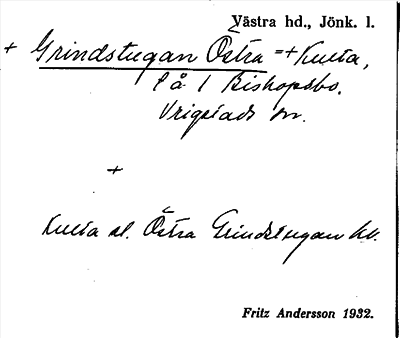 Västra hd., Jönk. l.
+ Grindstugan Östra = + Kulla,
på 1 Bishopsbo.
Vrigstads sn.
+
Kulla el. Östra Grindstugan kv.
Fritz Andersson 1932.